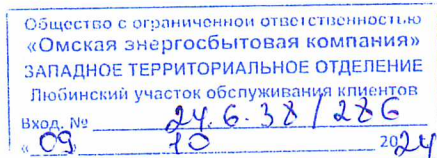 Общество с ограниченной ответственностью
«Омская энергосбытовая компания»
ЗАПАДНОЕ ТЕРРИТОРИАЛЬНОЕ ОТДЕЛЕНИЕ
Любинский участок обслуживания клиентов
Вход. № 24.6.38/286
« 09 » 10 2024